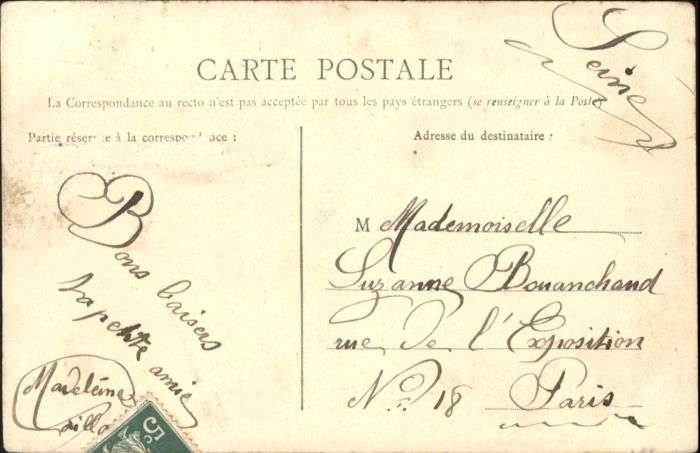 Seine
CARTE POSTALE
La Correspondance au recto n'est pas acceptée par tous les pays étrangers (se renseigner à la Poste)
Partie réservée à la correspondance :
Adresse du destinataire :
M Mademoiselle
Suzanne Bouanchaud
rue de l'Exposition
No 18 Paris
Bons baisers
ta petite amie
Madeleine
5